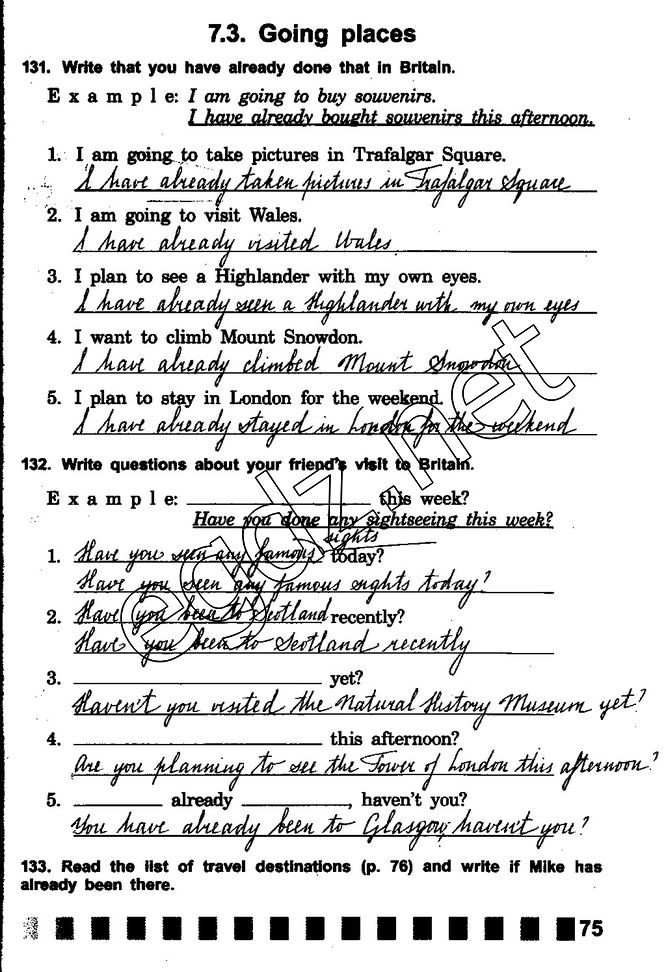 7.3. Going places
131. Write that you have already done that in Britain.
E x a m p l e: I am going to buy souvenirs.
I have already bought souvenirs this afternoon.
1. I am going to take pictures in Trafalgar Square.
I have already taken pictures in Trafalgar Square
2. I am going to visit Wales.
I have already visited Wales.
3. I plan to see a Highlander with my own eyes.
I have already seen a Highlander with my own eyes
4. I want to climb Mount Snowdon.
I have already climbed Mount Snowdon
5. I plan to stay in London for the weekend.
I have already stayed in London for the weekend
132. Write questions about your friend's visit to Britain.
E x a m p l e: ____________ this week?
Have you done any sightseeing this week?
sights
1. Have you seen any famous today?
Have you seen any famous sights today?
2. Have you been to Scotland recently?
Have you been to Scotland recently
3. ____________ yet?
Haven't you visited the Natural History Museum yet?
4. ____________ this afternoon?
Are you planning to see the Tower of London this afternoon?
5. ________ already ________, haven't you?
You have already been to Glasgow, haven't you?
133. Read the list of travel destinations (p. 76) and write if Mike has
already been there.
75
egdz.net